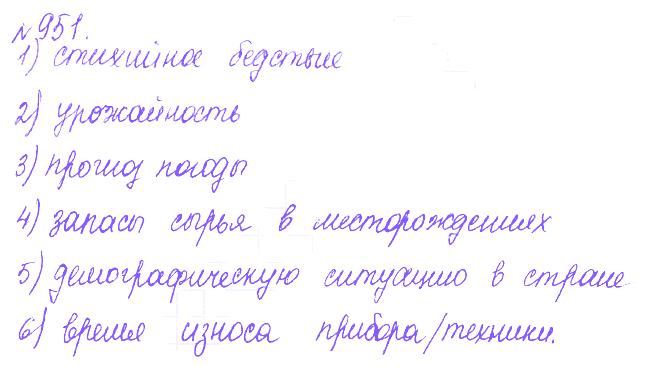 №951.
1) стихийное бедствие
2) урожайность
3) прогноз погоды
4) запасы сырья в месторождениях
5) демографическую ситуацию в стране
6) время износа прибора/техники.